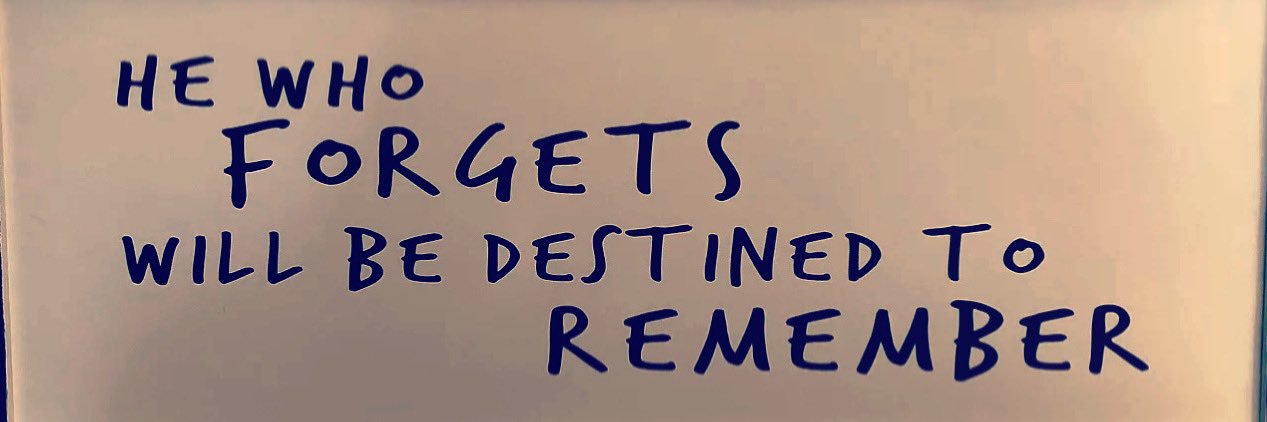 HE WHO
FORGETS
WILL BE DESTINED TO
REMEMBER